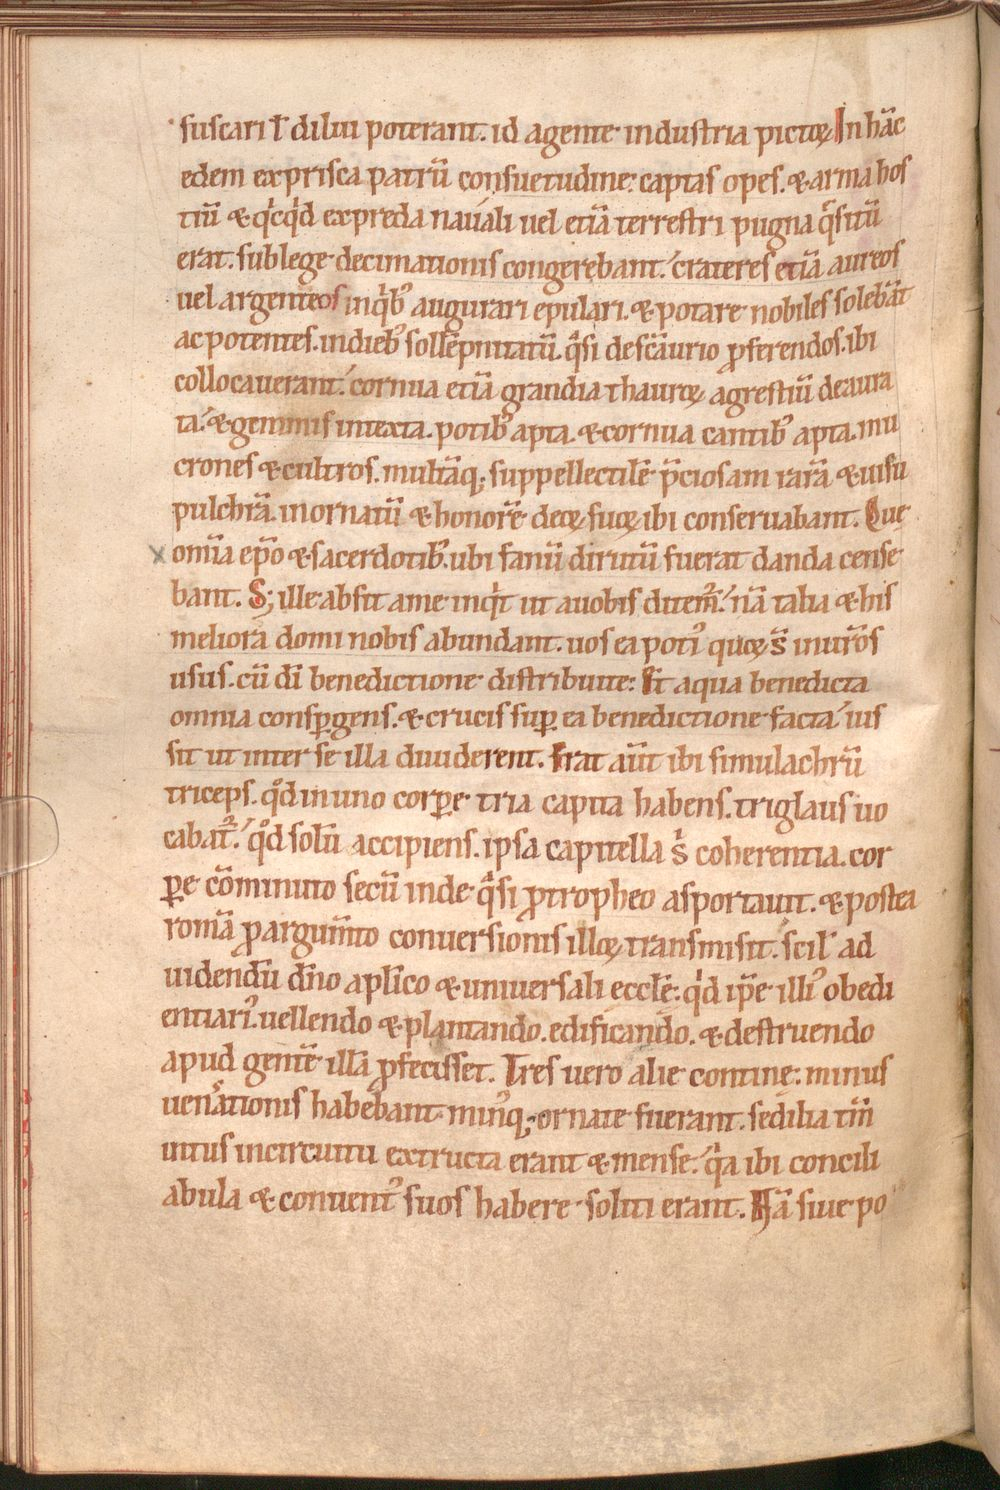 suscari ł dilui poterant. id agente industria pictoꝝ. In hāc
edem ex prisca patrū consuetudine: captas opes. & arma hos
tiū & qͥcqͥd ex preda nauali uel etiā terrestri pugna q̄situ̅
erat. sub lege decimationis congerebant. crateres etiā aureos
uel argenteos in qͥbꝰ augurari epulari. & potare nobiles solebāt
ac potentes. in diebꝰ sollēpnitatū. qͣsi de sc̄auurio ꝓferendos. ibi
collocauerant. cornua etiā grandia thauroꝝ agrestiū deaura
ta. & gemmis intexta. potibꝰ apta. & cornua cantibꝰ apta. mu
crones & cultros. multāq; suppellectilē p̄ciosam rarā & uisu
pulchrā. in ornatū & honorē deoꝝ suoꝝ ibi conseruabant. Que
omīa ep̄o & sacerdotibꝰ. ubi fanū dirutū fuerat danda cense
bant. S; ille absit a me inqͥt ut a uobis ditem̄. nā talia & his
meliora domi nobis abundant. uos ea potiꝰ quoꝝ s̄ in ur̄os
usus. cū dī benedictione distribuite: Et aqua benedicta
omnia consp̲gens. & crucis sup̲ ea benedictione facta ius
sit ut inter se illa diuiderent. Erat aūt ibi simulachrū
triceps. qͦd in uno corp̲e tria capita habens. triglaus uo
cabat᷑. qͦd solū accipiens. ipsa capitella s̄ coherentia. cor
p̲e cōminuto secū inde qͣsi ꝓ tropheo asportauit. & postea
romā ꝓ argum̄to conuersionis illoꝝ transmisit. scil̄ ad
uidendū dn̄o apl̄ico & uniuersali eccl̄e: qͥd ip̄e illiꝰ obedi
entiariꝰ. uellendo & plantando. edificando. & destruendo
apud gentē illā ꝓfecisset. Tres uero alie contine: minus
uen̄ationis habebant minꝰq; ornate fuerant. sedilia tm̄
intus in circuitu extructa erant & mense. qͣ ibi concili
abula & conuentꝰ suos habere soliti erant. Nā siue po